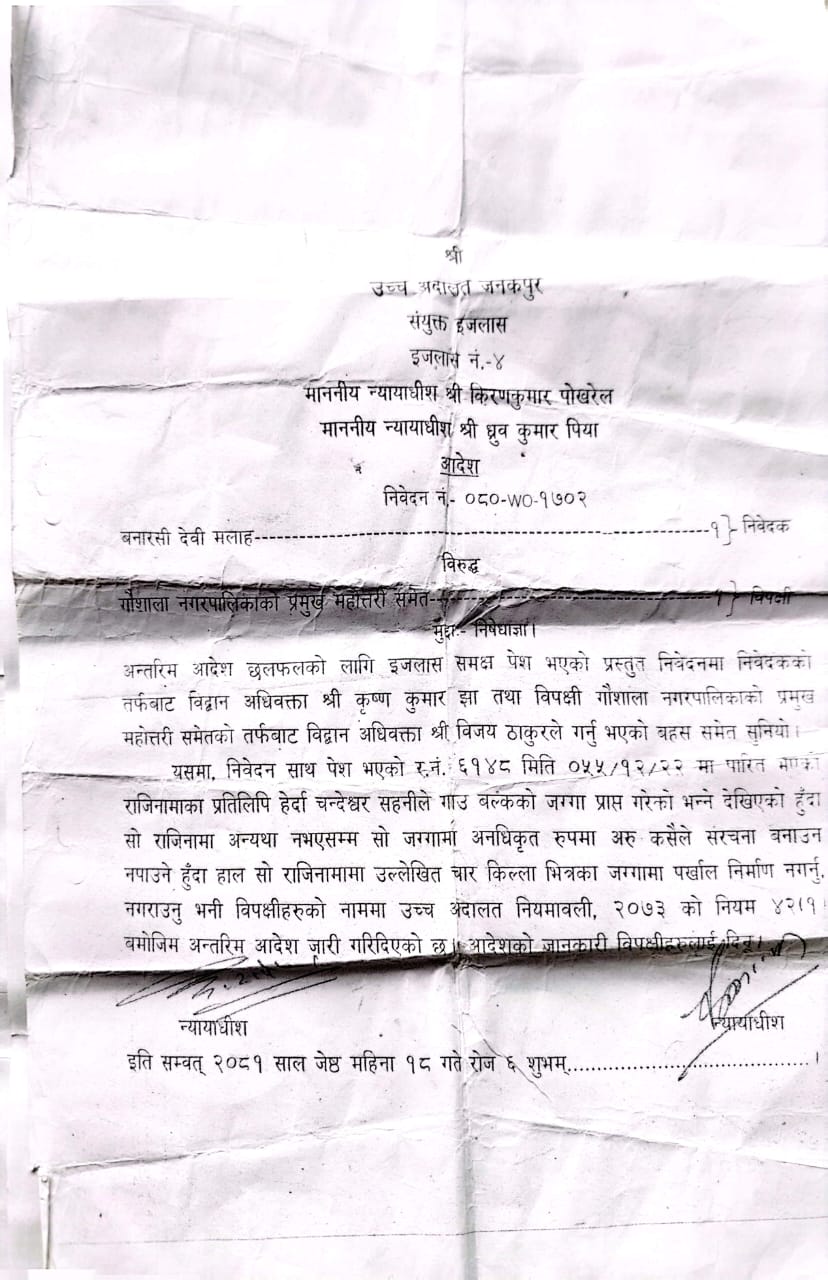 श्री
उच्च अदालत जनकपुर
संयुक्त इजलास
इजलास नं.-४
माननीय न्यायाधीश श्री किरणकुमार पोखरेल
माननीय न्यायाधीश श्री ध्रुव कुमार पिया
आदेश
निवेदन नं.- ०८०-WO-१७०२
बनारसी देवी मलाह------------------------------------------------१ } निवेदक
विरुद्ध
गौशाला नगरपालिकाको प्रमुख महोत्तरी समेत--------------------------------१ } विपक्षी
मुद्दाः- निषेधाज्ञा।
अन्तरिम आदेश छलफलको लागि इजलास समक्ष पेश भएको प्रस्तुत निवेदनमा निवेदकको
तर्फबाट विद्वान अधिवक्ता श्री कृष्ण कुमार झा तथा विपक्षी गौशाला नगरपालिकाको प्रमुख
महोत्तरी समेतको तर्फबाट विद्वान अधिवक्ता श्री विजय ठाकुरले गर्नु भएको बहस समेत सुनियो।
यसमा, निवेदन साथ पेश भएको र.नं. ६१४८ मिति ०५५/१२/२२ मा पारित भएको
राजिनामाका प्रतिलिपि हेर्दा चन्देश्वर सहनीले गाउ बल्कको जग्गा प्राप्त गरेको भन्ने देखिएको हुँदा
सो राजिनामा अन्यथा नभएसम्म सो जग्गामा अनधिकृत रुपमा अरु कसैले संरचना बनाउन
नपाउने हुँदा हाल सो राजिनामामा उल्लेखित चार किल्ला भित्रका जग्गामा पर्खाल निर्माण नगर्नु,
नगराउनु भनी विपक्षीहरुको नाममा उच्च अदालत नियमावली, २०७३ को नियम ४२(१
बमोजिम अन्तरिम आदेश जारी गरिदिएको छ। आदेशको जानकारी विपक्षीहरुलाई दिनू।
न्यायाधीश
न्यायाधीश
इति सम्वत् २०८१ साल जेष्ठ महिना १८ गते रोज ६ शुभम्.......................................।